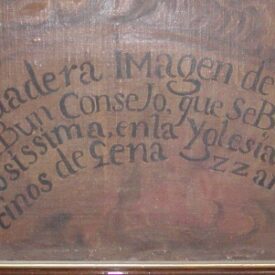 dadera IMagen de
Bun ConseJo, que SeB
osissima, enla Yglesia
cinos de Gena zzan